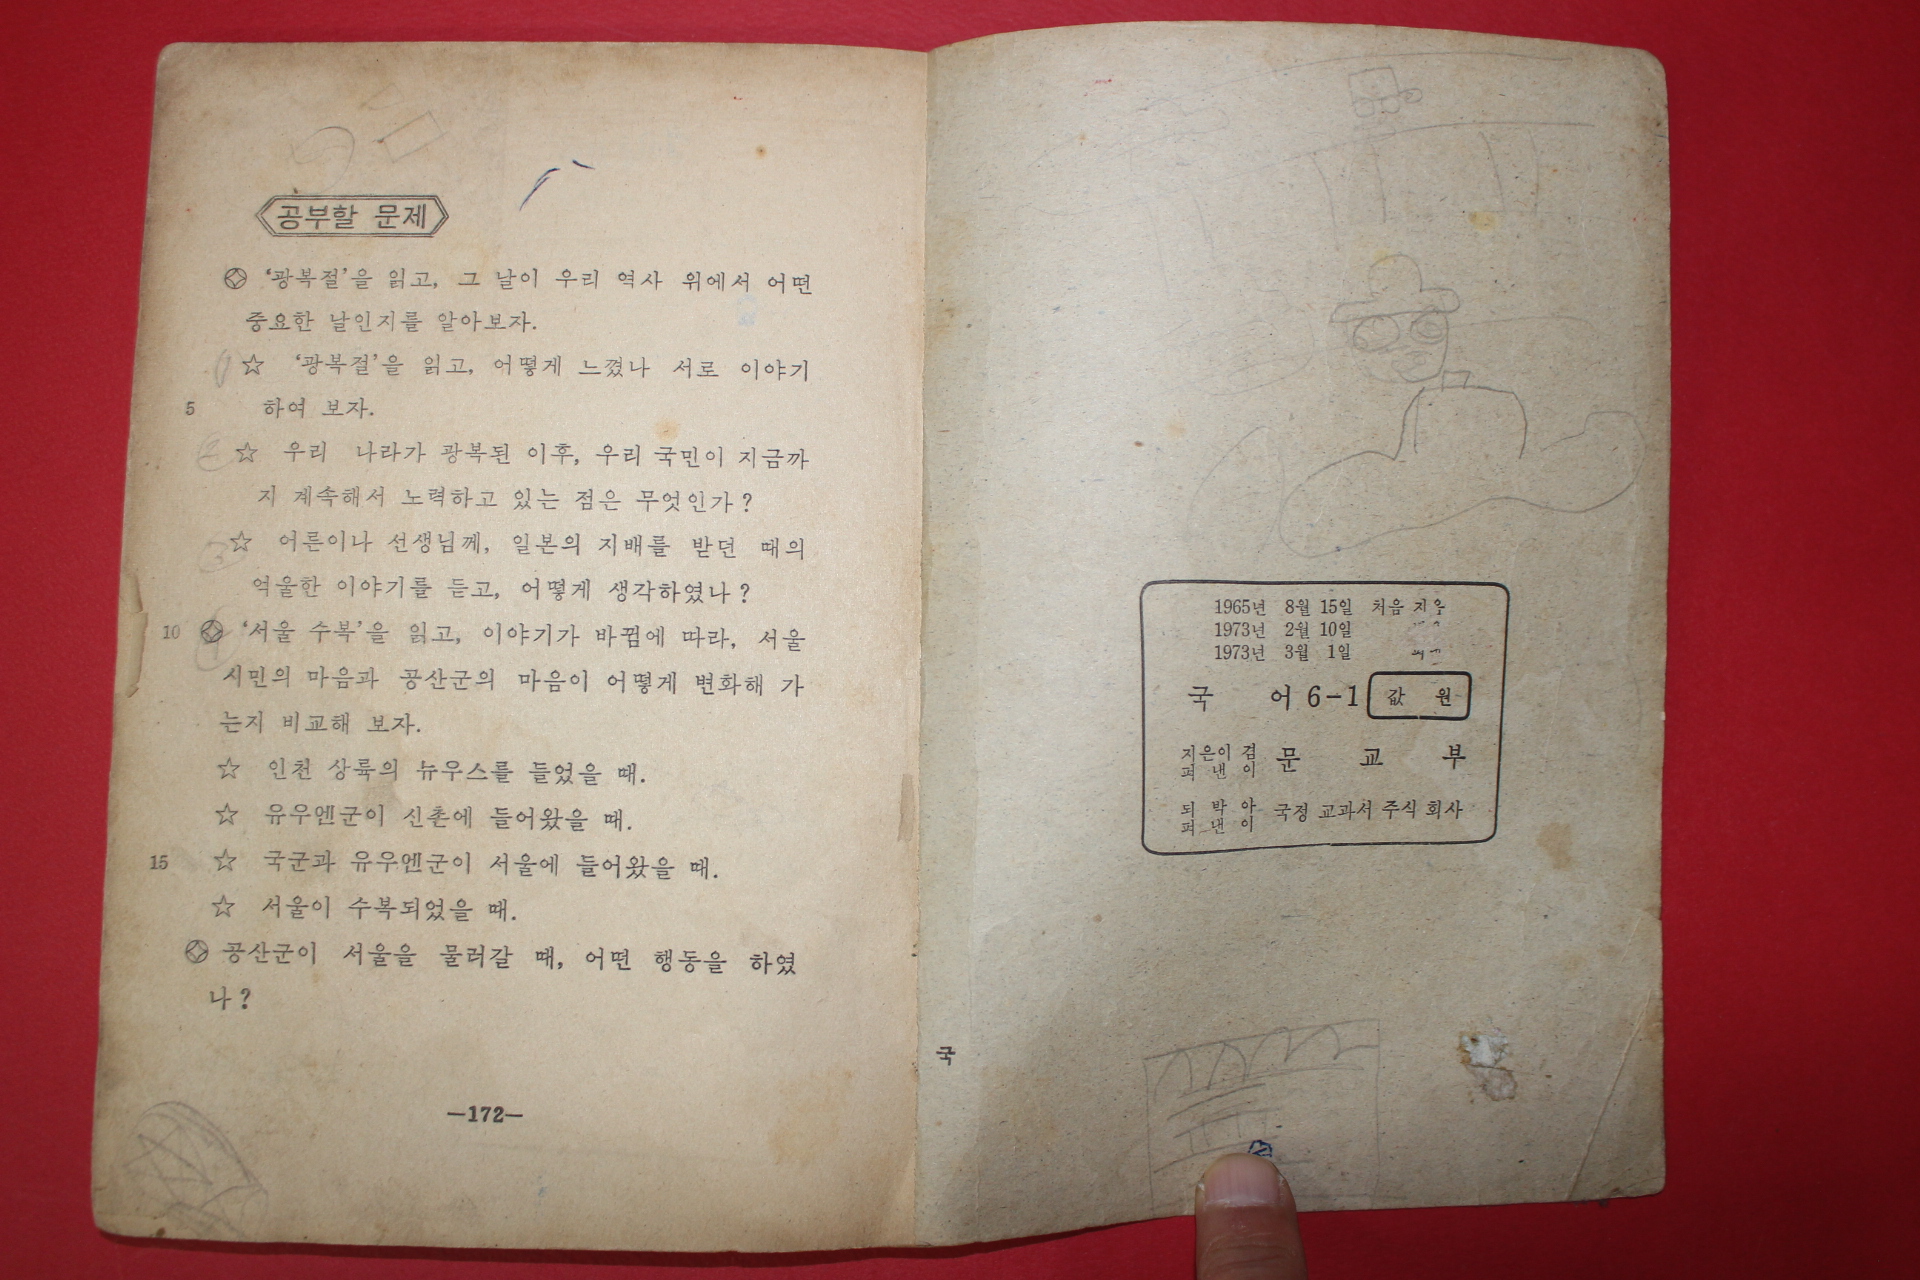 공부할 문제
'광복절'을 읽고, 그 날이 우리 역사 위에서 어떤
중요한 날인지를 알아보자.
☆ '광복절'을 읽고, 어떻게 느꼈나 서로 이야기
5 하여 보자.
☆ 우리 나라가 광복된 이후, 우리 국민이 지금까
지 계속해서 노력하고 있는 점은 무엇인가?
☆ 어른이나 선생님께, 일본의 지배를 받던 때의
억울한 이야기를 듣고, 어떻게 생각하였나?
10 '서울 수복'을 읽고, 이야기가 바뀜에 따라, 서울
시민의 마음과 공산군의 마음이 어떻게 변화해 가
는지 비교해 보자.
☆ 인천 상륙의 뉴우스를 들었을 때.
☆ 유우엔군이 신촌에 들어왔을 때.
15 ☆ 국군과 유우엔군이 서울에 들어왔을 때.
☆ 서울이 수복되었을 때.
공산군이 서울을 물러갈 때, 어떤 행동을 하였
나?
—172—
1965년 8월 15일 처음
1973년 2월 10일
1973년 3월 1일
국 어 6-1 값 원
지은이 겸
펴 낸 이 문 교 부
되 박 아
펴 낸 이 국정 교과서 주식 회사
국